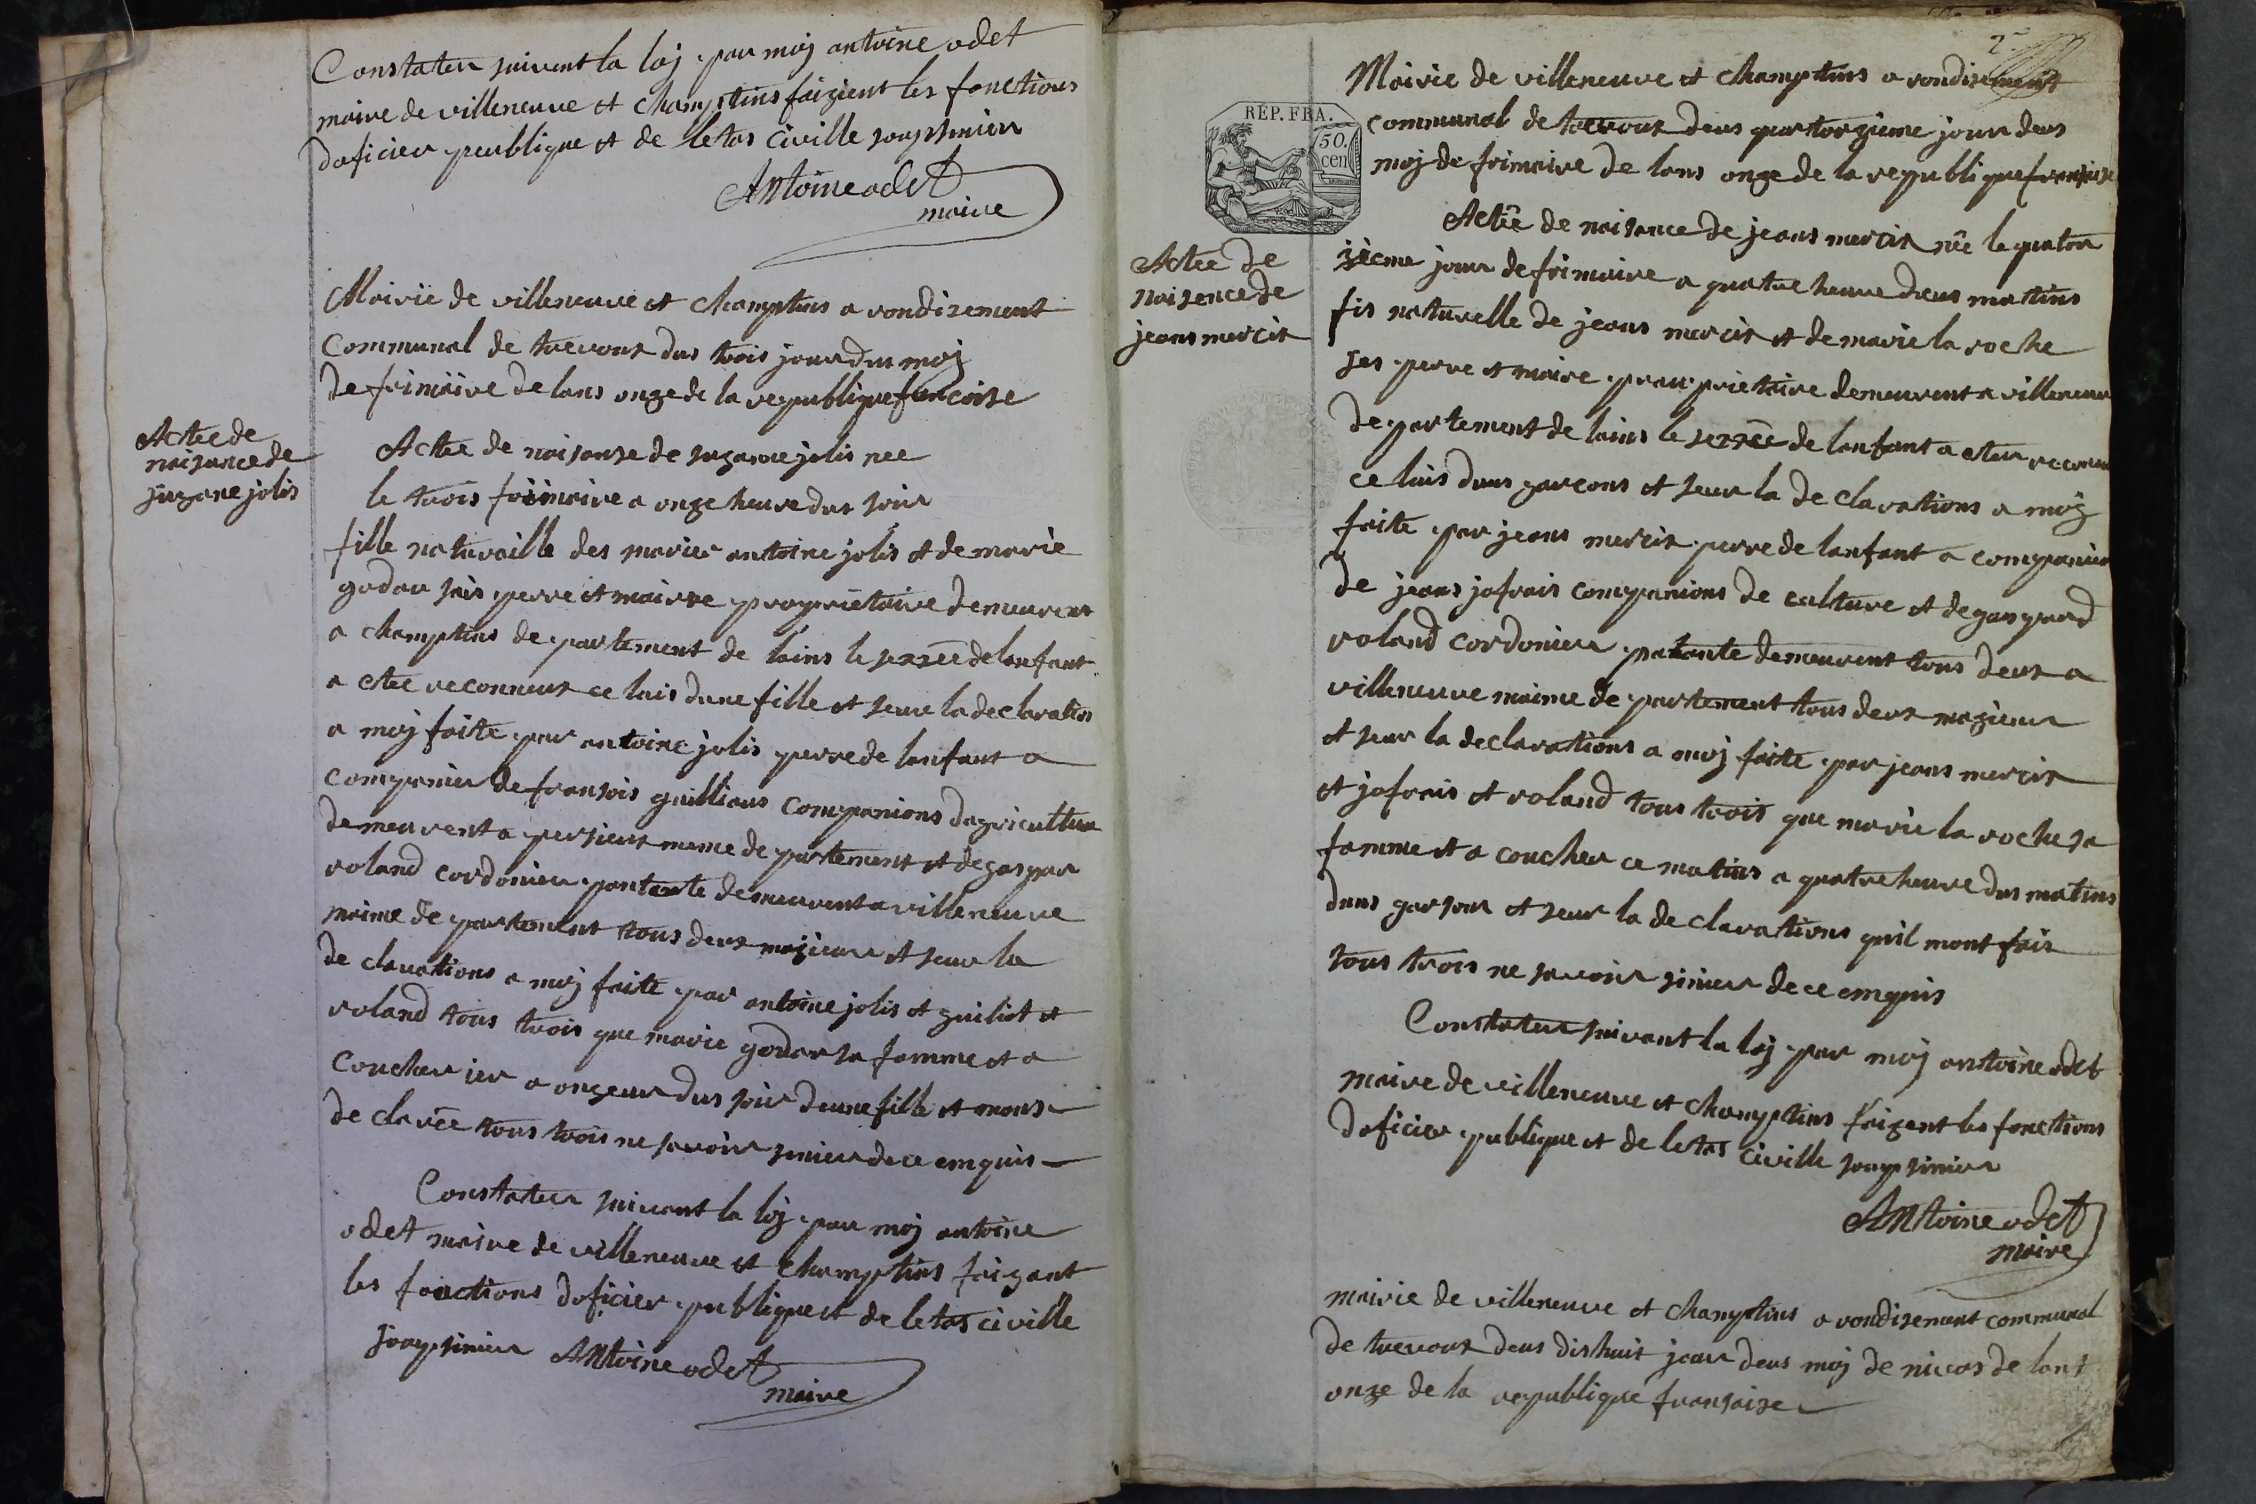 Constater suivent la loj par moij antoine odet
maire de villeneuve et champtins faizient les fonctions
doficier peublique et de letas civille sousinier
Antoine odet
maire
Mairië de villeneuve et champtins arondizement
Communal de trevoux dus trois jour dus moij
de frimäire de lans onze de la republique francoise
Actee de
naisance de
suzane jolis
Actee de naisanse de suzane jolis nee
le trois frimaire a onze heure dus soir
fille naturaille des marier antoine jolis et de marie
godar sais perre et mairre proprietaire demeurent
a champtins departement de lains le sexsee de lanfant
a etee reconneus ce lais dune fille et seur la declaration
a moij faite par antoine jolis perre de lanfant a
companier de fransois guillious companions dagriculture
demeurent a persieux meme departement et de gaspar
roland cordonier pantente demeurent a villeneuve
maime departement tous deux majieur et seur la
declarations a moij faite par antoine jolis et guiliot et
roland tous trois que marie godar sa famme et a
coucher ier a onzeur dus soir deune fille et mons
declarée tous trois ne savoir sinier de ce emquis
Constater suivent la loij par moij antoine
odet maire de villeneuve et champtins faizant
les fonctions doficier publique et de letas civille
sousinier Antoine odet
maire
2
Mairie de villeneuve et champtins arondizement
REP. FRA.
50.
cen
communal de trevoux deus quatorzieme jour deus
moij de frimaire de lans onze de la republique fransaise
Actee de
naisence de
jeans mercit
Actëe de naisance de jeans mercit nëe le quator
zieme jour de frimaire a quatre heure deus matins
fis naturelle de jeans mercit et de marie la roche
ses perre et maire prauprietaire demeurent a villeneuve
departement de lains le sexsëe de lanfant a eter reconeu
ce luis duns garcons et seur la declarations a moij
faite par jeans mercit perre de lanfant a companier
de jeans jafrais companions de culture et de gaspard
roland cordonier patante demeurent tous deux a
villeneuve maime departement tous deux magieur
et seur la declarations a moij faite par jeans mercit
et jafrais et roland tous trois que marie la roche sa
famme et a coucher ce matins a quatre heure dus matins
duns garsons et seur la declarations quil mont fais
tous trois ne savoir sinier de ce emquis
Constater suivant la loj par moij antoine odet
maire de villeneuve et champtins faizent les fonctions
doficier publique et de letas civille sousinier
Antoine odet
maire
mairie de villeneuve et champtins arondizemant communal
de trevoux deus dishuit jour deus moij de nivos de lans
onze de la republique fransaise